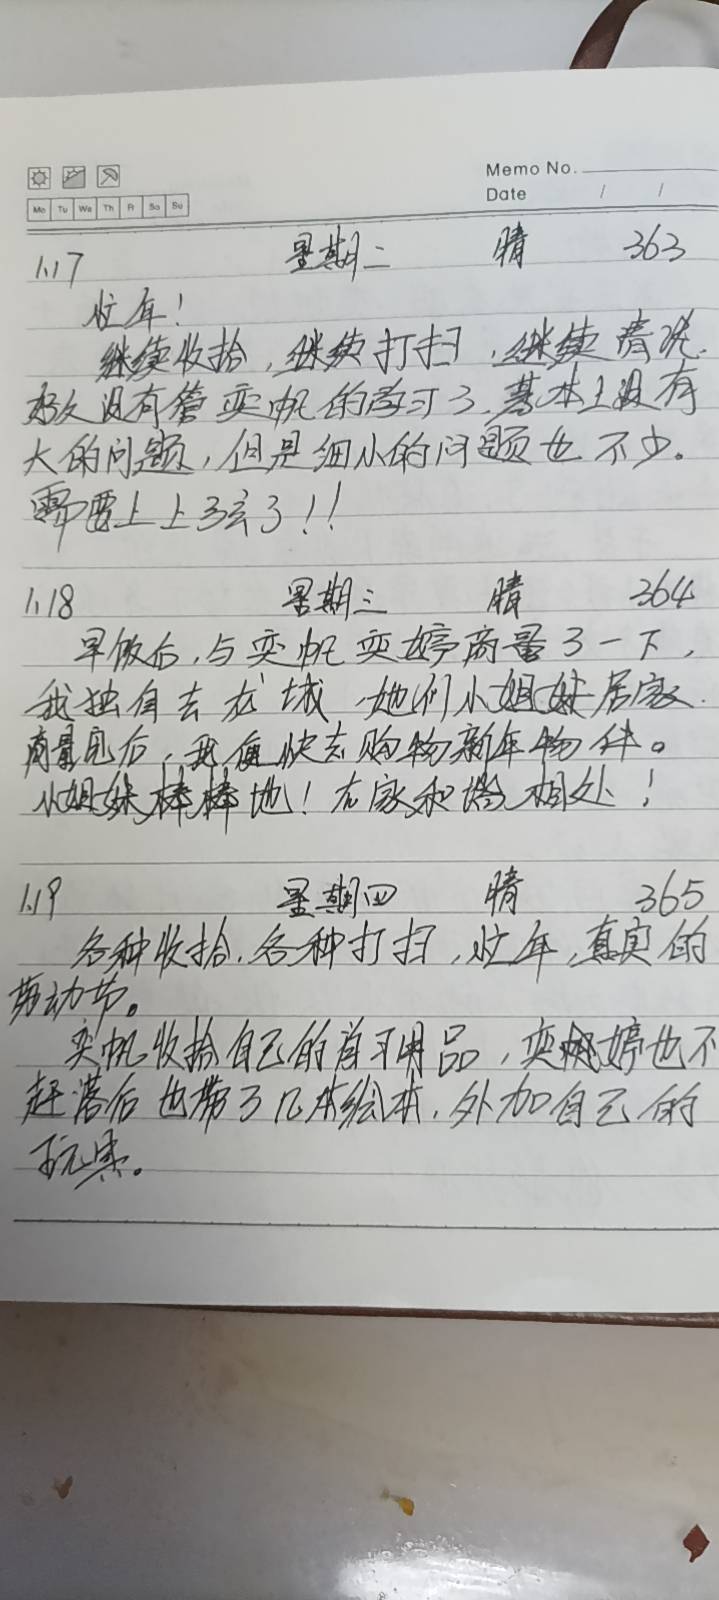 Memo No.
Date / /
Mo Tu We Th Fr Sa Su
1.17 星期二 晴 363
忙年!
继续收拾,继续打扫,继续清洗.
好久没有管奕帆的学习了.基本上没有
大的问题,但是细小的问题也不少。
需要上上弦了!!
1.18 星期三 晴 364
早饭后,与奕帆奕婷商量了一下,
我独自去 城,她们小姐妹居家.
商量完后,我便快去购物新年物件。
小姐妹棒棒地!在家和谐相处!
1.19 星期四 晴 365
各种收拾.各种打扫,忙年,真实的
劳动节。
奕帆收拾自己的学习用品,奕婷也不
赶落后也带了几本绘本.外加自己的
玩具。